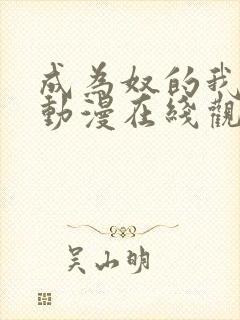 成為奴的我
動漫在綫觀
吴山明